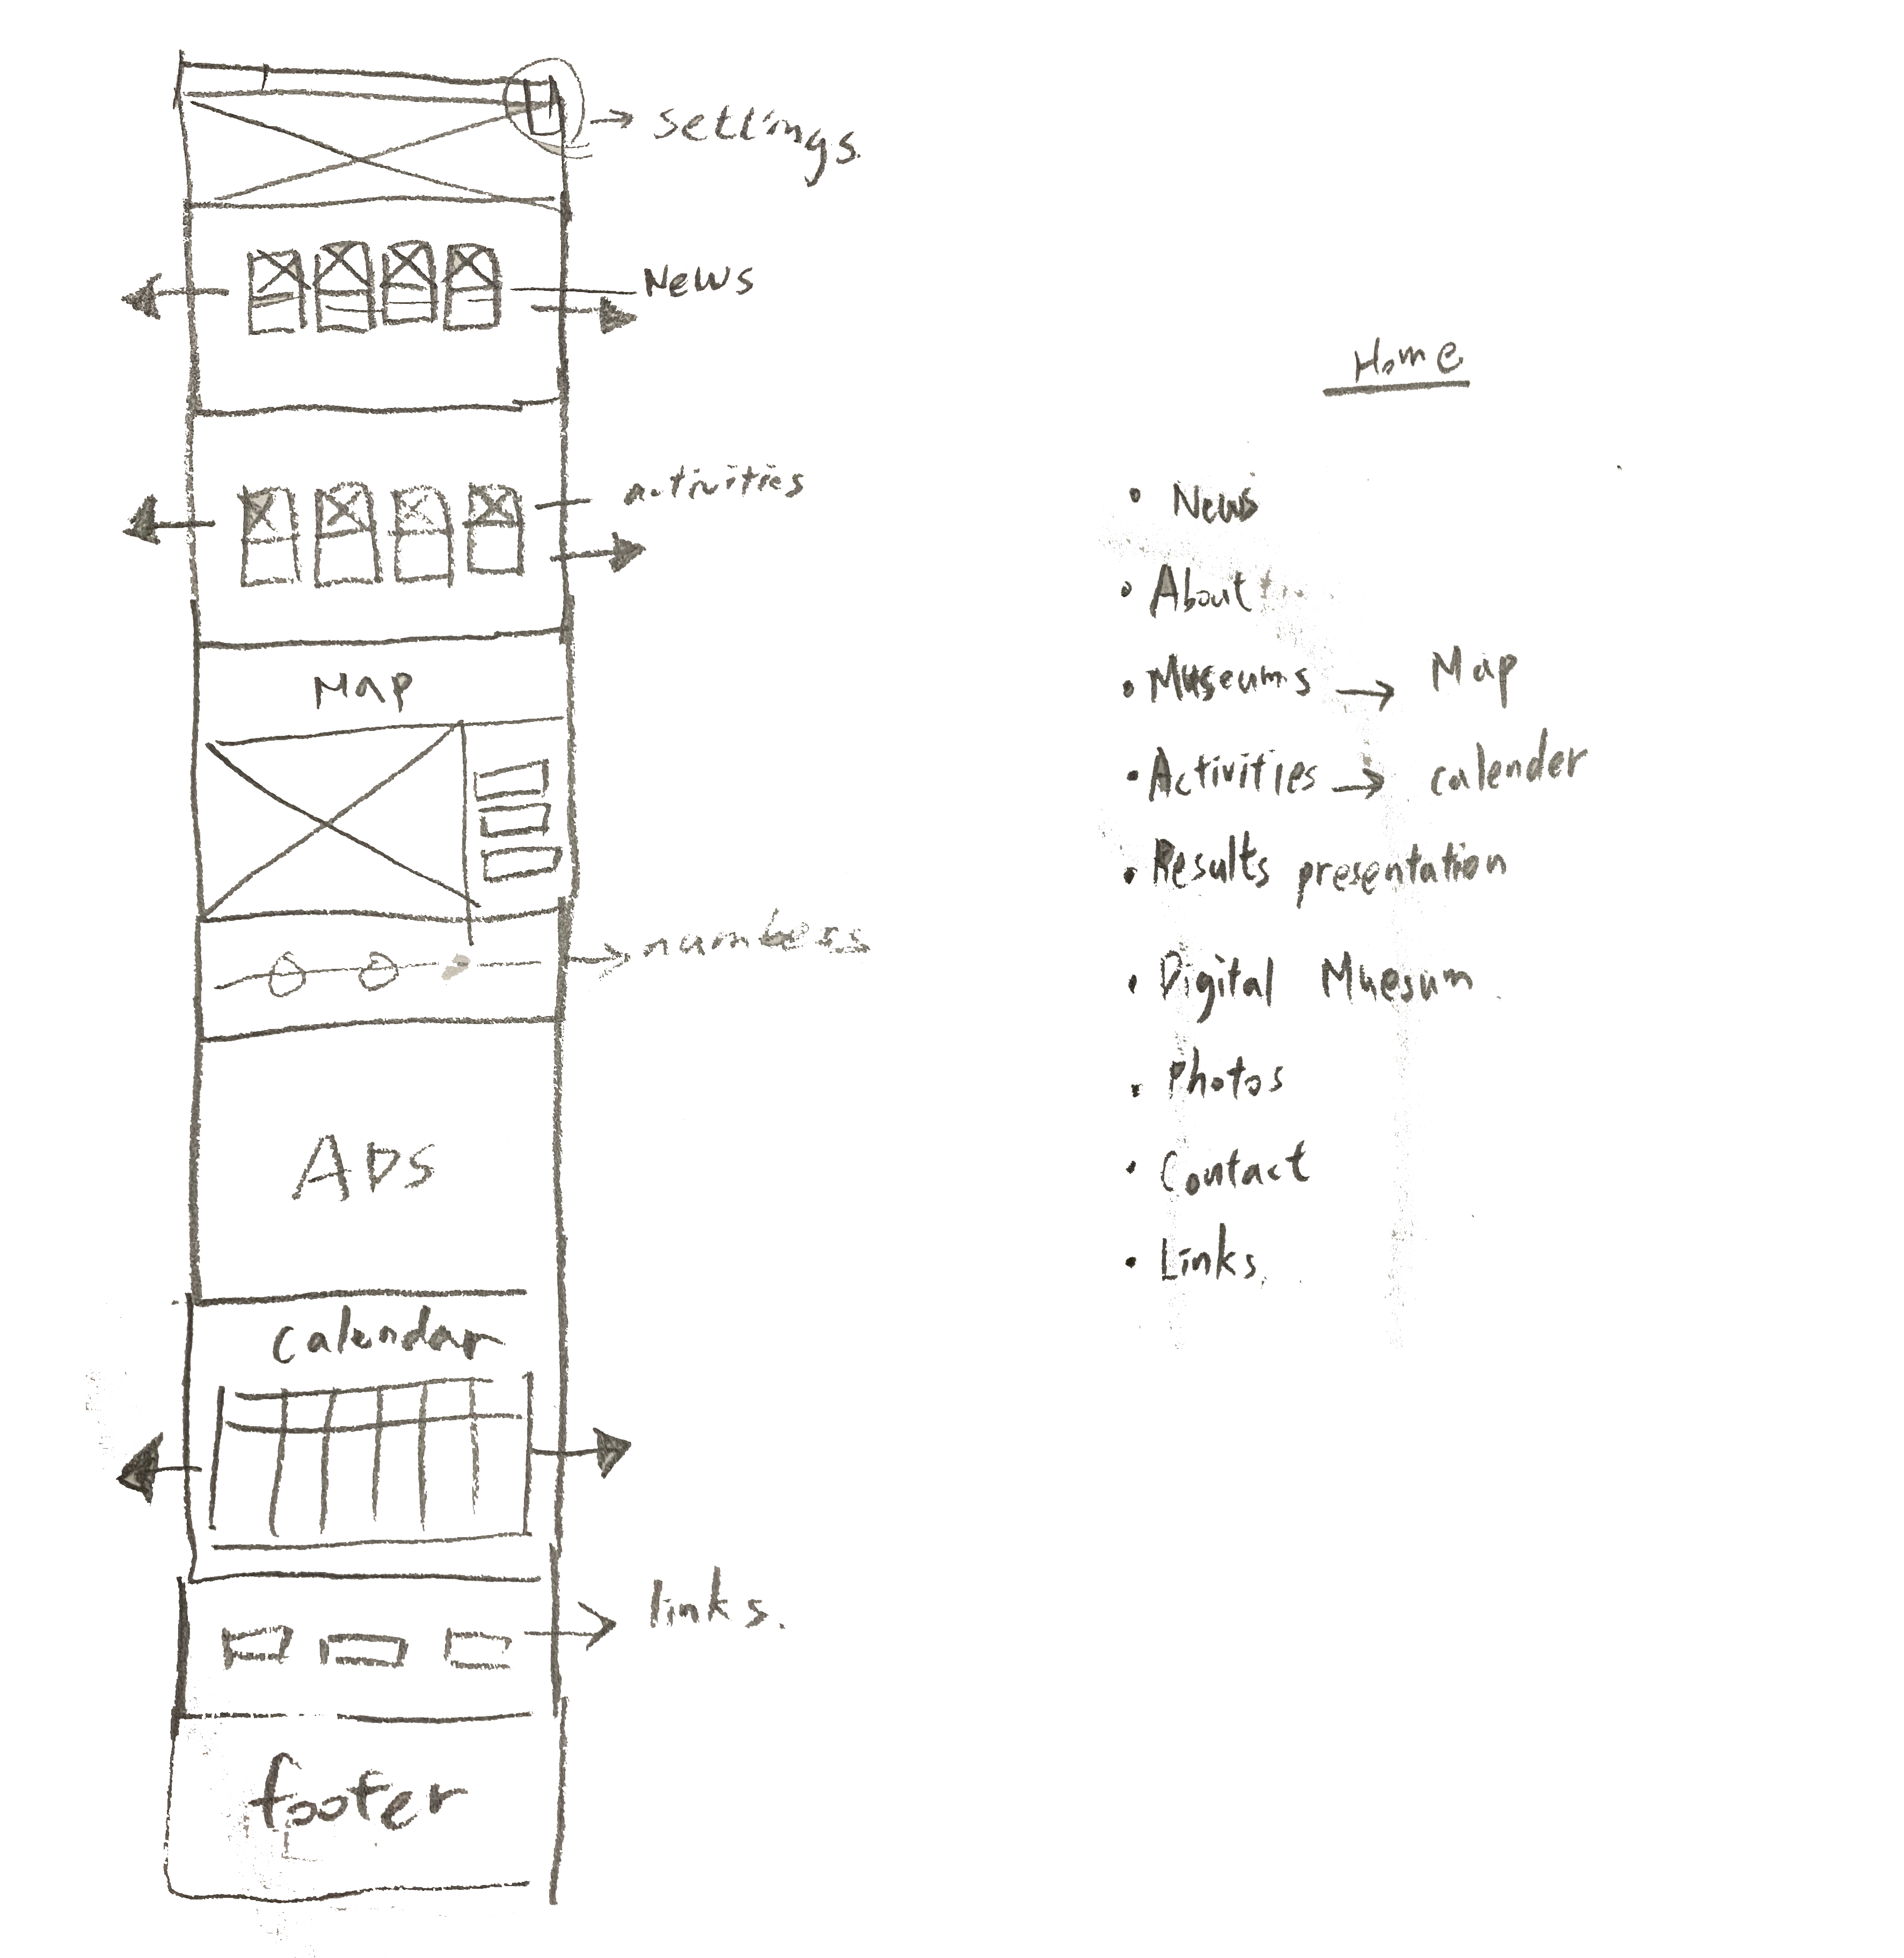 settings.
News
activities
Map
numbers
ADS
Calendar
links.
footer
Home
• News
• About
• Museums → Map
• Activities → calender
• Results presentation
• Digital Muesum
• Photos
• Contact
• Links.